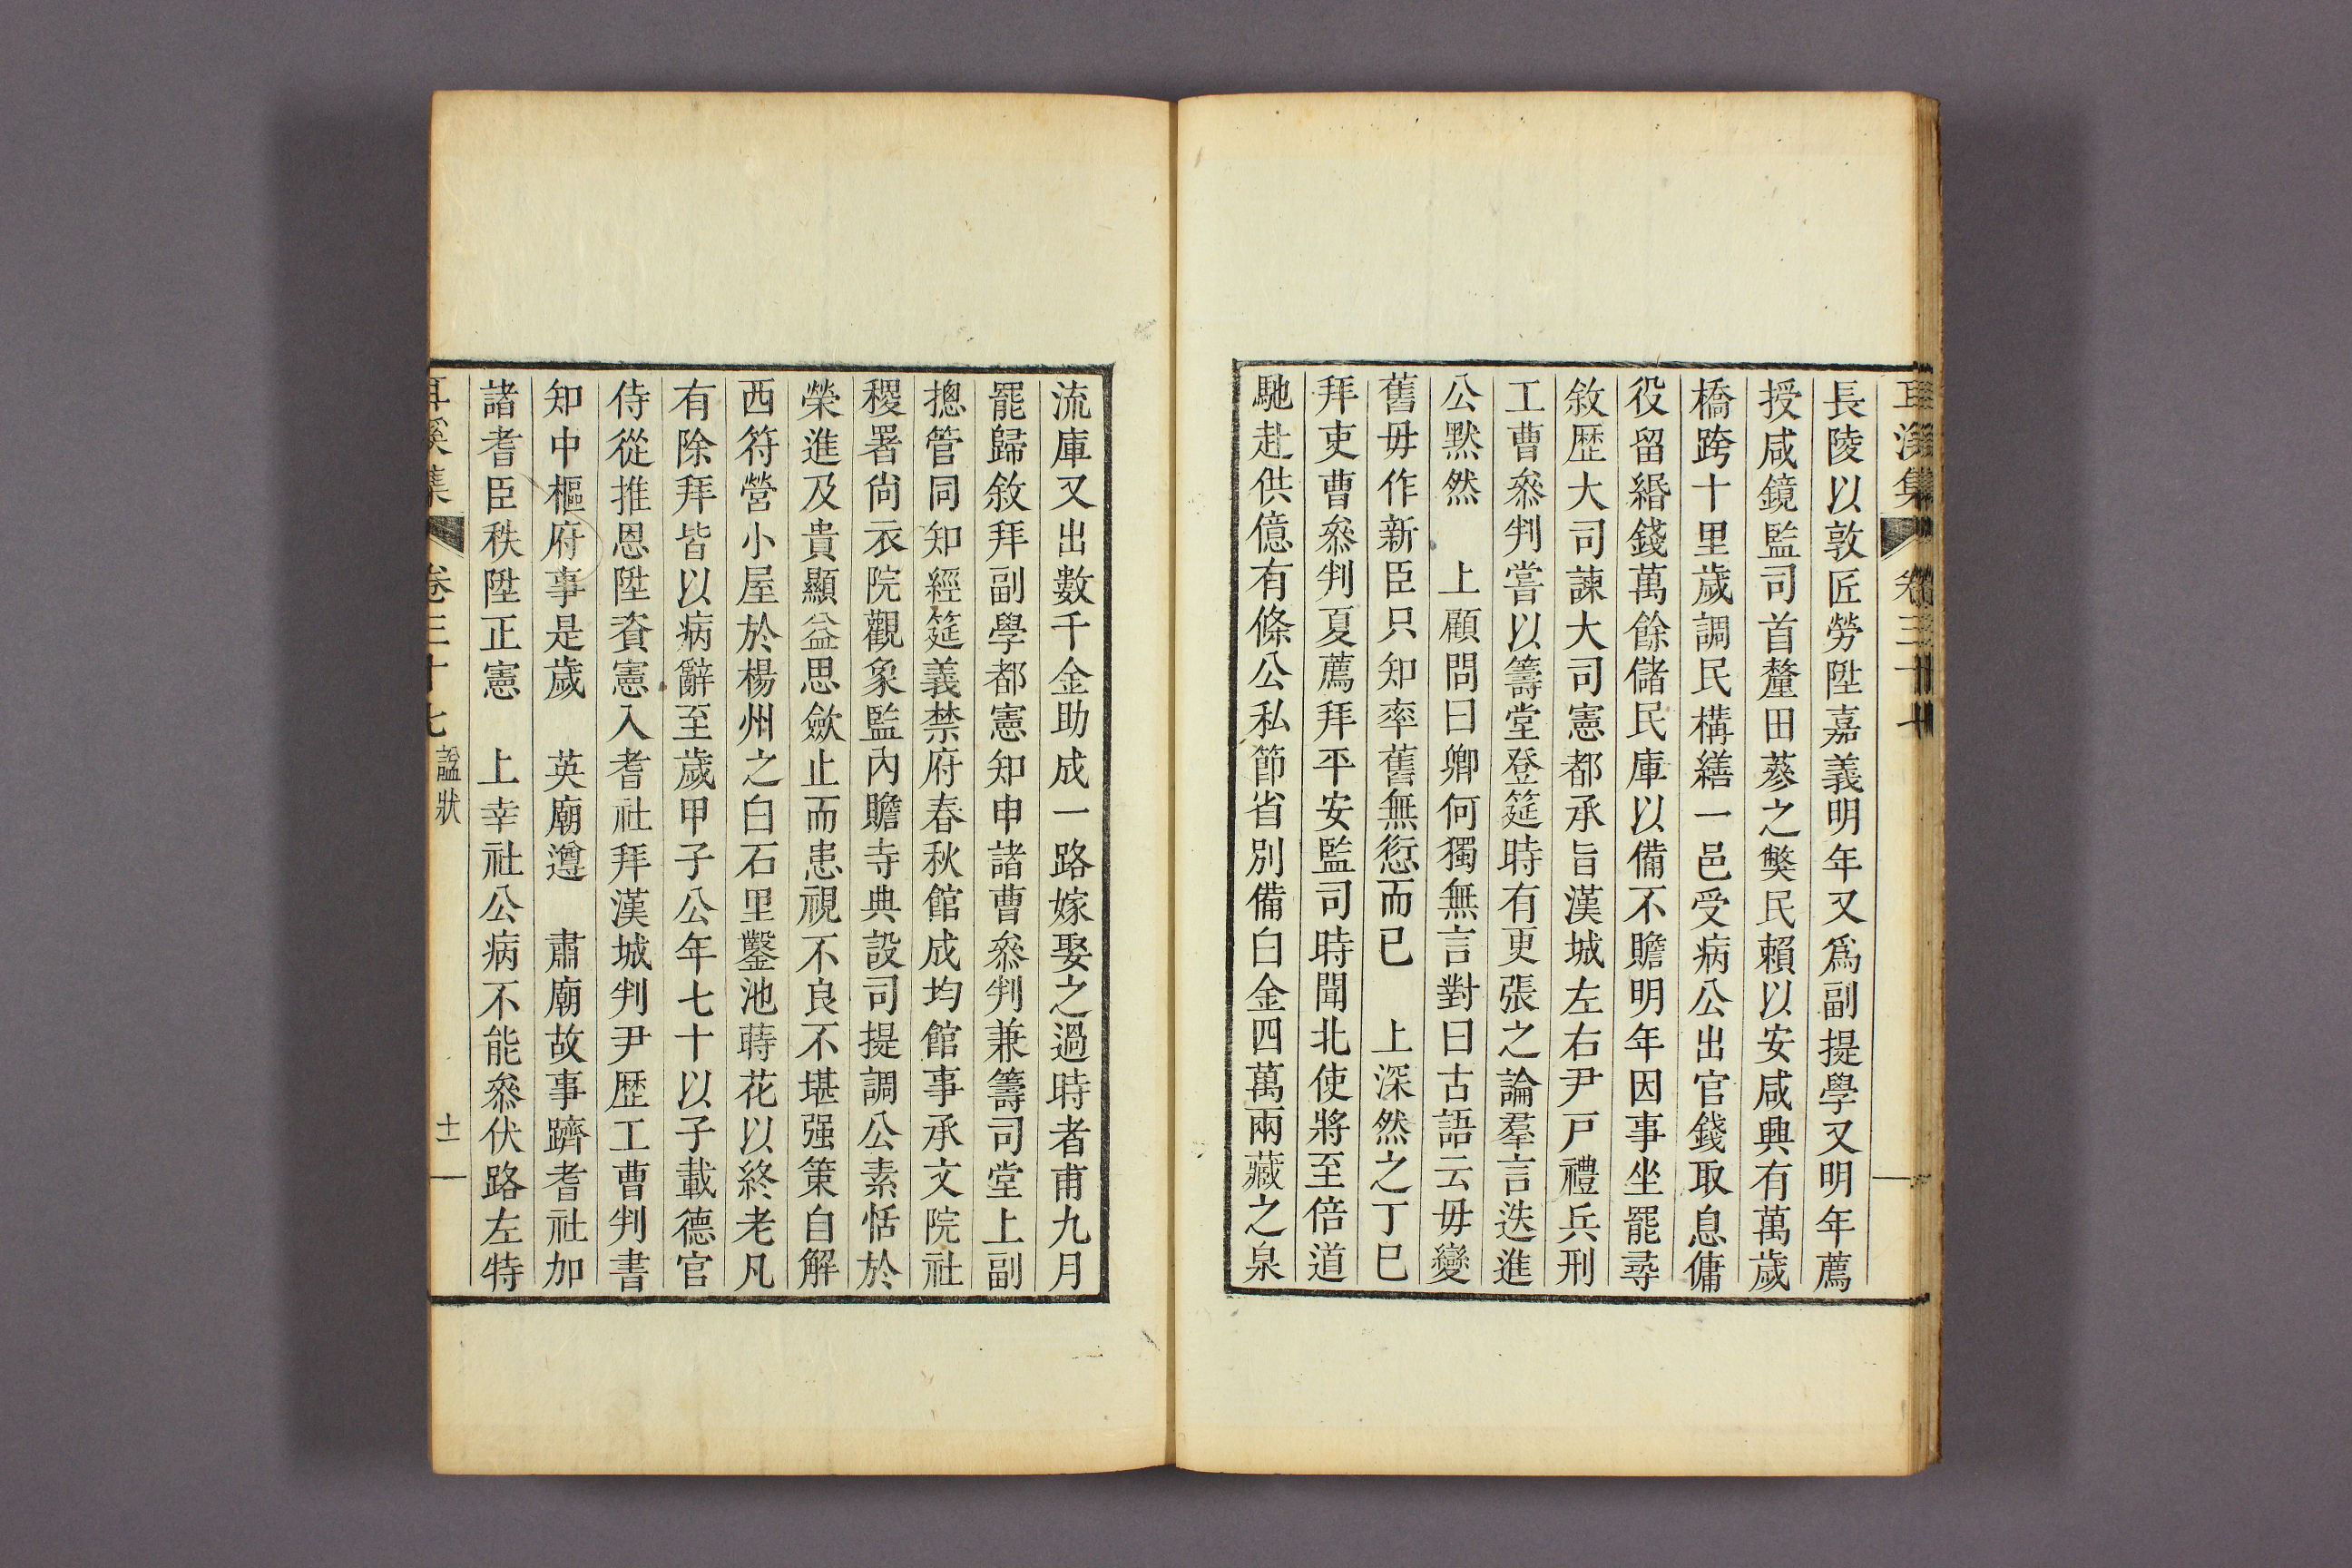 耳溪集 卷三十七
長陵以敦匠勞陞嘉義明年又爲副提學又明年薦
授咸鏡監司首釐田蔘之獘民賴以安咸興有萬歲
橋跨十里歲調民構繕一邑受病公出官錢取息傭
役留緡錢萬餘儲民庫以備不贍明年因事坐罷尋
敘歷大司諫大司憲都承旨漢城左右尹戶禮兵刑
工曹叅判嘗以籌堂登筵時有更張之論羣言迭進
公默然　上顧問曰卿何獨無言對曰古語云毋變
舊毋作新臣只知率舊無愆而已　上深然之丁巳
拜吏曹叅判夏薦拜平安監司時聞北使將至倍道
馳赴供億有條公私節省別備白金四萬兩藏之泉
流庫又出數千金助成一路嫁娶之過時者甫九月
罷歸敘拜副學都憲知申諸曹叅判兼籌司堂上副
摠管同知經筵義禁府春秋館成均館事承文院社
稷署尙衣院觀象監內贍寺典設司提調公素恬於
榮進及貴顯益思歛止而患視不良不堪强策自解
西符營小屋於楊州之白石里鑿池蒔花以終老凡
有除拜皆以病辭至歲甲子公年七十以子載德官
侍從推恩陞資憲入耆社拜漢城判尹歷工曹判書
知中樞府事是歲　英廟遵　肅廟故事躋耆社加
諸耆臣秩陞正憲　上幸社公病不能叅伏路左特
耳溪集 卷三十七 諡狀 十一